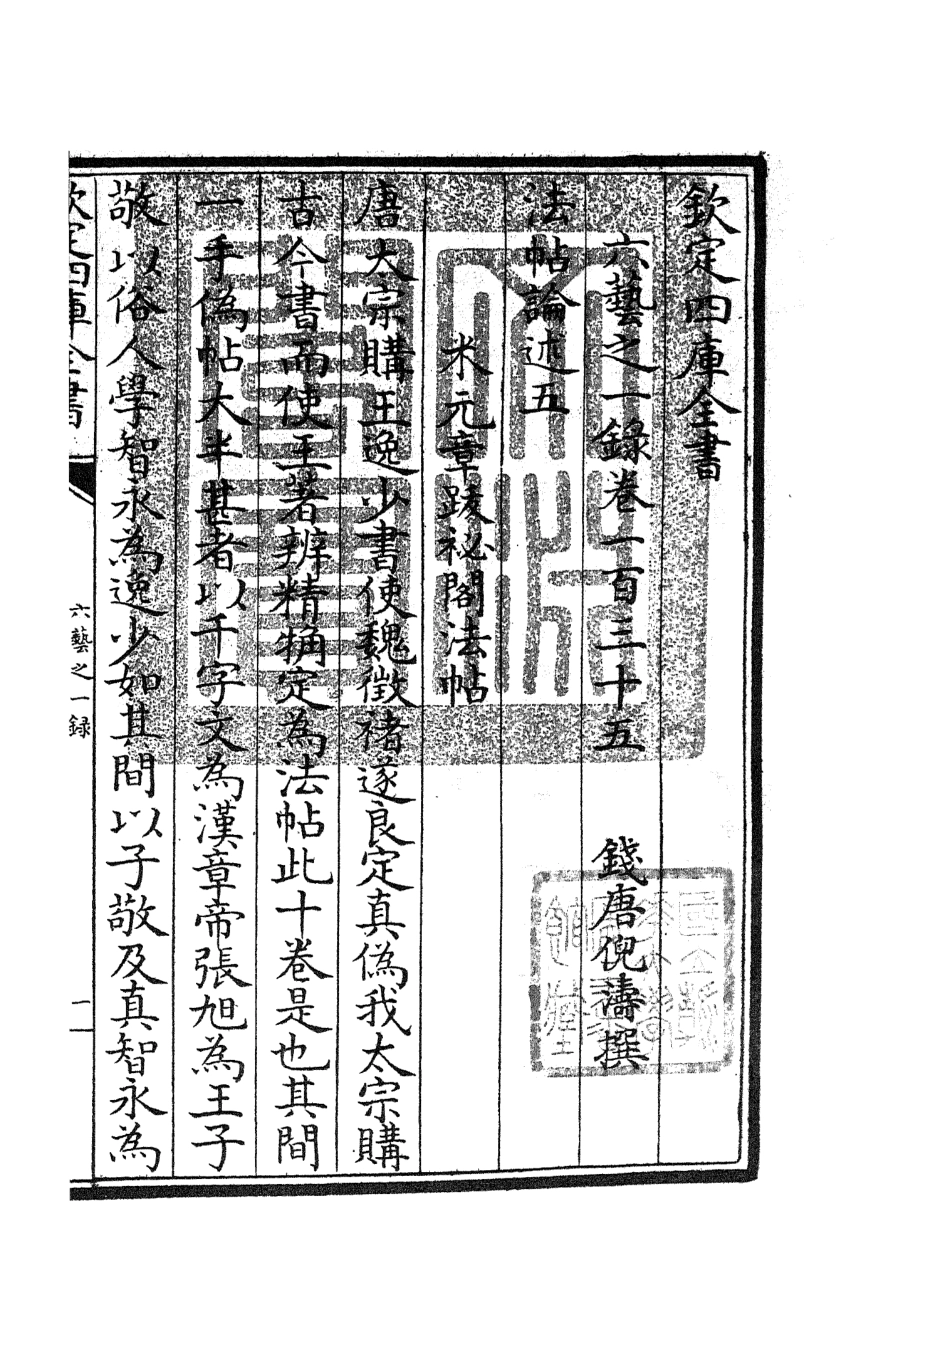 欽定四庫全書
六藝之一錄卷一百三十五
錢唐倪濤撰
法帖論述五
米元章跋祕閣法帖
唐太宗購王逸少書使魏徵褚遂良定真偽我太宗購
古今書而使王著辨精觕定為法帖此十卷是也其間
一手偽帖大半甚者以千字文為漢章帝張旭為王子
敬以俗人學智永為逸少如其間以子敬及真智永為
欽定四庫全書
六藝之一錄
一